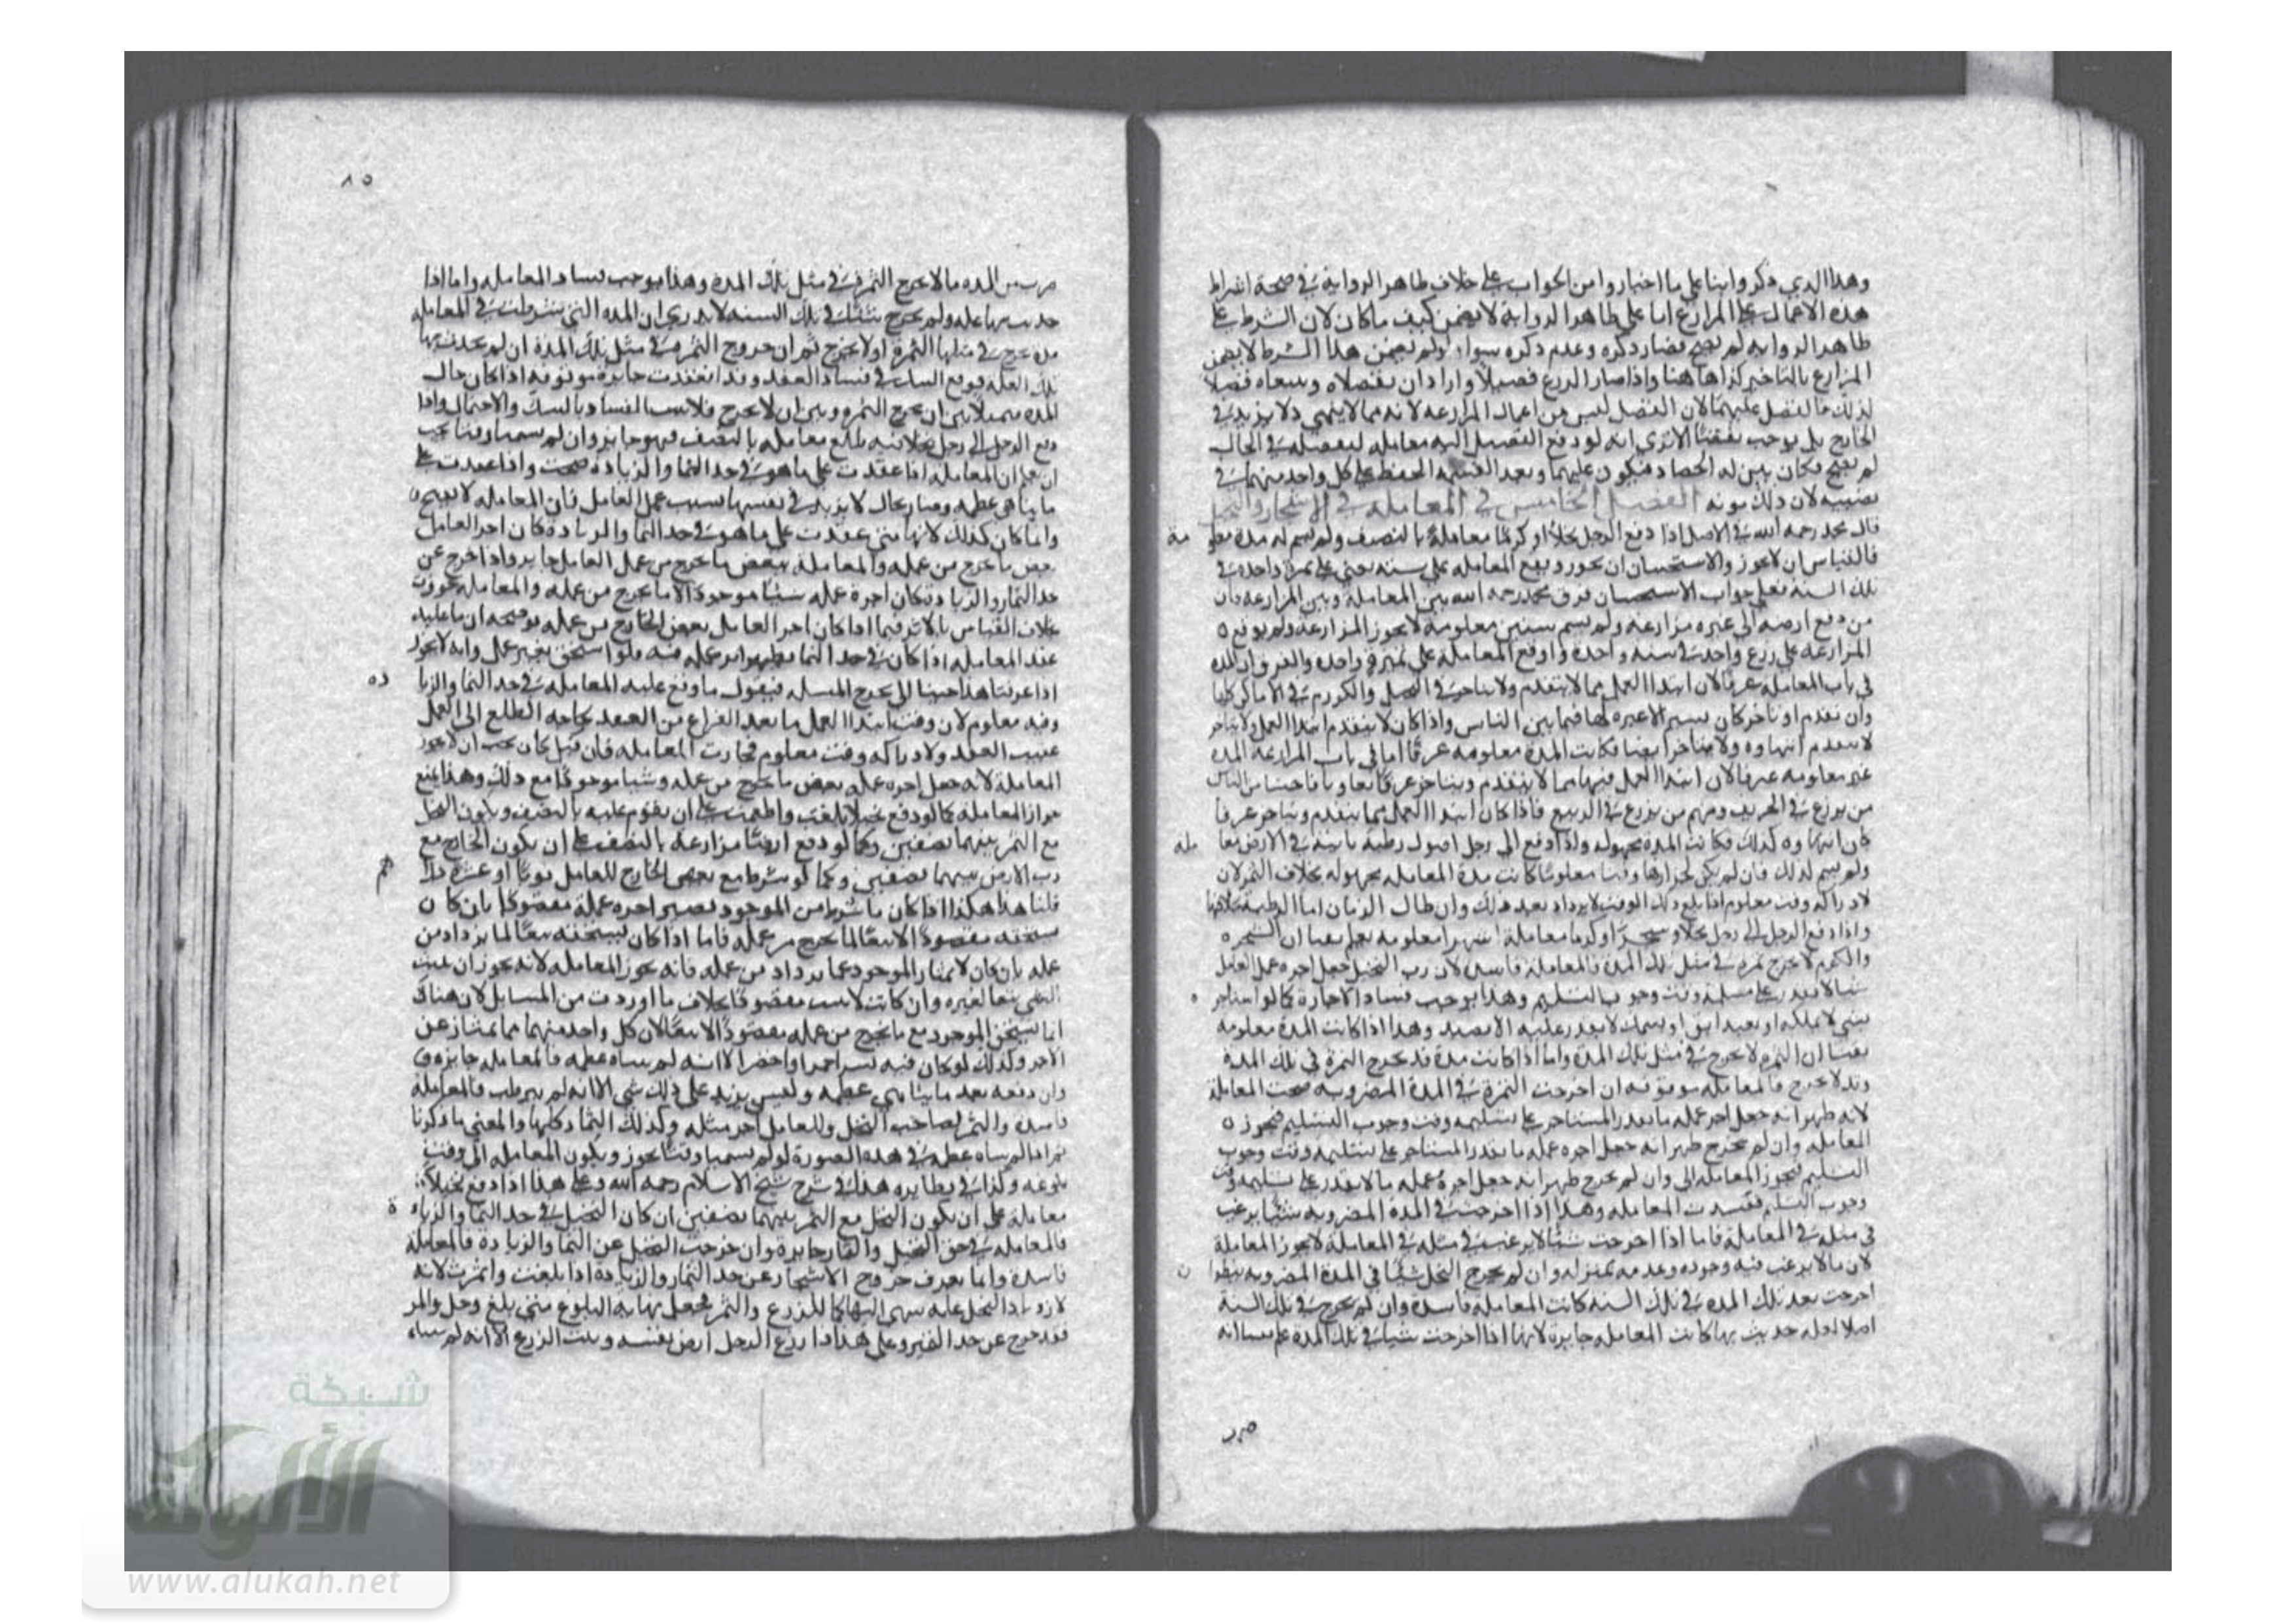 وهذا الذي ذكروا بنا على ما اختاروا من الجواب على خلاف ظاهر الرواية في صحة اشراط
هذه الاعمال على المزارع اما على ظاهر الرواية لا يضمن كيف ما كان لان الشرط على
ظاهر الروايه لم يصح فصار ذكره وعدم ذكره سواء ولو لم يضمن هذا الشرط لا يضمن
المزارع بالتاخير كذا هاهنا واذا صار الزرع فصيلا وارادا ان يفصلاه وسعاه فصلا
لذلك فالفصل عليهما لان الفصل ليس من اعمال المزارعه لانه مما لا ينهي ولا يزيد في
الخارج بل يوجب نقصا الا ترى انه لو دفع الفصيل اليه معامله ليفصله في الحال
لم يصح فكان بمنزله الحصاد فيكون عليهما وبعد القسمه الحفظ على كل واحد منهما في
نصيبه لان ذلك مونه الفصل الخامس في المعامله في الاشجار والنخيل
قال محمد رحمه الله في الاصل اذا دفع الرجل نخلا او كرما معاملة بالنصف ولم يسم له مدة معلو مة
فالقياس ان لا يجوز والاستحسان ان يجوز ويقع المعامله على سنه يعني على ثمرة واحده في
تلك السنة فعلى جواب الاستحسان فرق محمد رحمه الله بين المعاملة وبين المزارعه فان
من دفع ارضه الى غيره مزارعه ولم يسم سنين معلومة لا يجوز المزارعه ولم يوقع
المزارعه على زرع واحد في سنه واحده واوقع المعاملة على ثمرة واحده والفرق ان المده
في باب المعامله عرفا لان ابتدا العمل مما لا يتقدم ولا يتاخر في النخيل والكروم في الاماكن كلها
وان تقدم او تاخر كان يسير الا عبره لها فيما بين الناس واذا كان لا يتقدم ابتدا العمل ولا يتاخر
لا يتقدم انتهاوه ولا يتاخر ايضا فكانت المدة معلومه عرفا اما في باب المزارعة المده
غير معلومه عرفا لان ابتدا العمل فيها مما لا يتقدم ويتاخر عرفا تفاوتا فاحشا من الناس
من يزرع في الخريف ومنهم من يزرع في الربيع فاذا كان ابتدا العمل مما يتقدم ويتاخر عرفا
كان انتهاوه كذلك فكانت المدة مجهوله ولذا دفع الى رجل اصول رطبة نابتة في الارض معا مله
ولم يسم لذلك فان لم يكن لجزازها وقتا معلوما كانت مدة المعامله مجهوله بخلاف الثمر لان
لادراكه وقت معلوم اذا بلغ ذلك الوقت لا يزداد بعد ذلك وان طال الزمان اما الرطبة
واذا دفع الرجل الى رجل نخلا او شجرا او كرما معاملة اشهرا معلومه يعلم يقينا ان الشجره
والكرم لا يخرج ثمره في مثل تلك المدة فالمعاملة فاسده لان رب النخيل جعل اجره عمل العامل
شيا لا يقدر على تسليمه وقت وجوب التسليم وهذا يوجب فساد الاجارة كما لو استاجر
بشي لا يملكه او بعبد ابق او بسمك لا يقدر عليه الا بصيد وهذا اذا كانت المدة معلومه
يقينا ان الثمر لا يخرج في مثل تلك المدة واما اذا كانت مدة قد يخرج الثمرة في تلك المدة
وقد لا يخرج فالمعامله موقوفه ان اخرجت الثمرة في المدة المضروبه صحت المعاملة
لانه ظهر انه جعل اجر عمله ما يقدر المستاجر على تسليمه وقت وجوب التسليم فيجوز
المعامله وان لم يخرج ظهر انه جعل اجره عمله ما يقدر المستاجر على تسليمه وقت وجوب
التسليم فيجوز المعامله الى وان لم يخرج ظهر انه جعل اجرة عمله ما لا يقدر على تسليمه وقت
وجوب التسليم ففسدت المعامله وهذا اذا اخرجت في المدة المضروبه شيا يرغب
في مثله في المعاملة فاما اذا اخرجت شيا لا يرغب في مثله في المعاملة لا يجوز المعاملة
لان ما لا يرغب فيه وجوده وعدمه بمنزله وان لم يخرج النخل شيئا في المدة المضروبه ينظر
اخرجت بعد تلك المده في تلك السنه كانت المعامله فاسدة وان لم يخرج في تلك السنة
اصلا لعله حديث بها كانت المعامله جايزة لانها اذا اخرجت شيا في تلك المدة علمنا انه
٨٥
من المده ما لا يخرج الثمر في مثل تلك المدة وهذا يوجب فساد المعامله واما اذا
حديث بها عله ولم يخرج شيئا في تلك السنه لا يدري ان المده التي شرطت في المعامله
مدة يخرج في مثلها الثمرة او لا يخرج ثم ان خروج الثمر في مثل تلك المدة ان لم يحدث بها
تلك العله فوقع الشك في فساد العقد وقد انعقدت جايزة موقوفه اذا كان حال
المدة بين ان يخرج الثمر وبين ان لا يخرج فلا يثبت الفساد بالشك والاحتمال واذا
دفع الرجل الى رجل نخلا فيه طلع معامله بالنصف فهو جايز وان لم يسميا وقتا يجب
ان يعلم ان المعامله اذا عقدت على ما هو في حد النما والزيادة صحت واذا عقدت على
ما تناهى عظمه وصار بحال لا يزيد في نفسها بسبب عمل العامل فان المعامله لا يصح
وانما كان كذلك لانها متى عقدت على ما هو في حد النما والزيادة كان اجر العامل
بعض ما يخرج من عمله والمعاملة ببعض ما يخرج من عمل العامل جايز واذا خرج عن
حد النمار والزيادة كان اجرة عمله شيئا موجودا لا ما يخرج من عمله والمعامله بجوزت
بخلاف القياس بالاثر فيما اذا كان اجر العامل بعض الخارج من عمله يوضحه ان ما عليه
عند المعامله اذا كان في حد النما يظهر اثر عمله فيه ولو استحق بغير عمل وانه لا يجوز
اذا عرفنا هذا جينا الى تخريج المسله فيقول ما وقع عليه المعامله في حد النما والزيا ده
وفيه معلوم لان وقت ابتدا العمل ما بعد الفراغ من العقد لحاجه الطلع الى العمل
عقيب العقد ولادراكه وقت معلوم فجازت المعامله فان قيل كان يجب ان لا يجوز
المعاملة لانه جعل اجره عمله بعض ما يخرج من عمله وشيا موجودا مع ذلك وهذا يمنع
جواز المعاملة كما لو دفع نخيلا بلغت واطعمت على ان يقوم عليه بالنصف ويكون النخل
مع الثمر بينهما نصفين وكما لو دفع ارضا مزارعة بالنصف على ان يكون الخارج مع
رب الارض بينهما نصفين وكما لو شرط مع بعض الخارج للعامل ثوبا او عشرة درا هم
قلنا هذا هكذا اذا كان ما شرط من الموجود يصير اجره عمله مقصودا بان كان
يستحقه مقصودا لا تبعا لما يخرج من عمله فاما اذا كان يستحقه تبعا لما يزداد من
عمله بان كان لا يمتاز الموجود عما يزداد من عمله فانه يجوز المعامله لانه يجوز ان يثبت
الشي تبعا لغيره وان كانت لا يثبت مقصودا بخلاف ما اوردت من المسايل لان هناك
انما يستحق الموجود مع ما يخرج من عمله مقصودا لا تبعا لان كل واحد منهما مما يمتاز عن
الاخر وكذلك لو كان فيه بسر احمر او اخضر الا انه لم يتناه عظمه فالمعامله جايزه
وان دفعه بعد ما تناهى عظمه وليس يزيد على ذلك شي الا انه لم يرطب فالمعاملة
فاسدة والثمر لصاحب النخل وللعامل اجر مثله وكذلك الثمار كلها والمعنى ما ذكرنا
ثم اذا لم يتناه عظمه في هذه الصورة لو لم يسميا وقتا يجوز ويكون المعامله الى وقت
بلوغه وكذا في نظايره هكذا في شرح شيخ الاسلام رحمه الله وعلى هذا اذا دفع نخيلا
معاملة على ان يكون النخل مع الثمر بينهما نصفين ان كان النخيل في حد النما والزياد ة
فالمعامله في حق النخيل والثمار جايزة وان خرجت النخيل عن النما والزيادة فالمعاملة
فاسدة وانما يعرف خروج الاشجار عن حد النمار والزيادة اذا بلغت واثمرت لانه
لازدياد النخل غايه ينتهي اليها كما للزرع والثمر فجعل نهايه البلوغ متى بلغ وحل والمر
فقد خرج عن حد الغير وعلى هذا اذا زرع الرجل ارض نفسه ونبت الزرع الا انه لم يتناه
شبكة
الألوكة
www.alukah.net